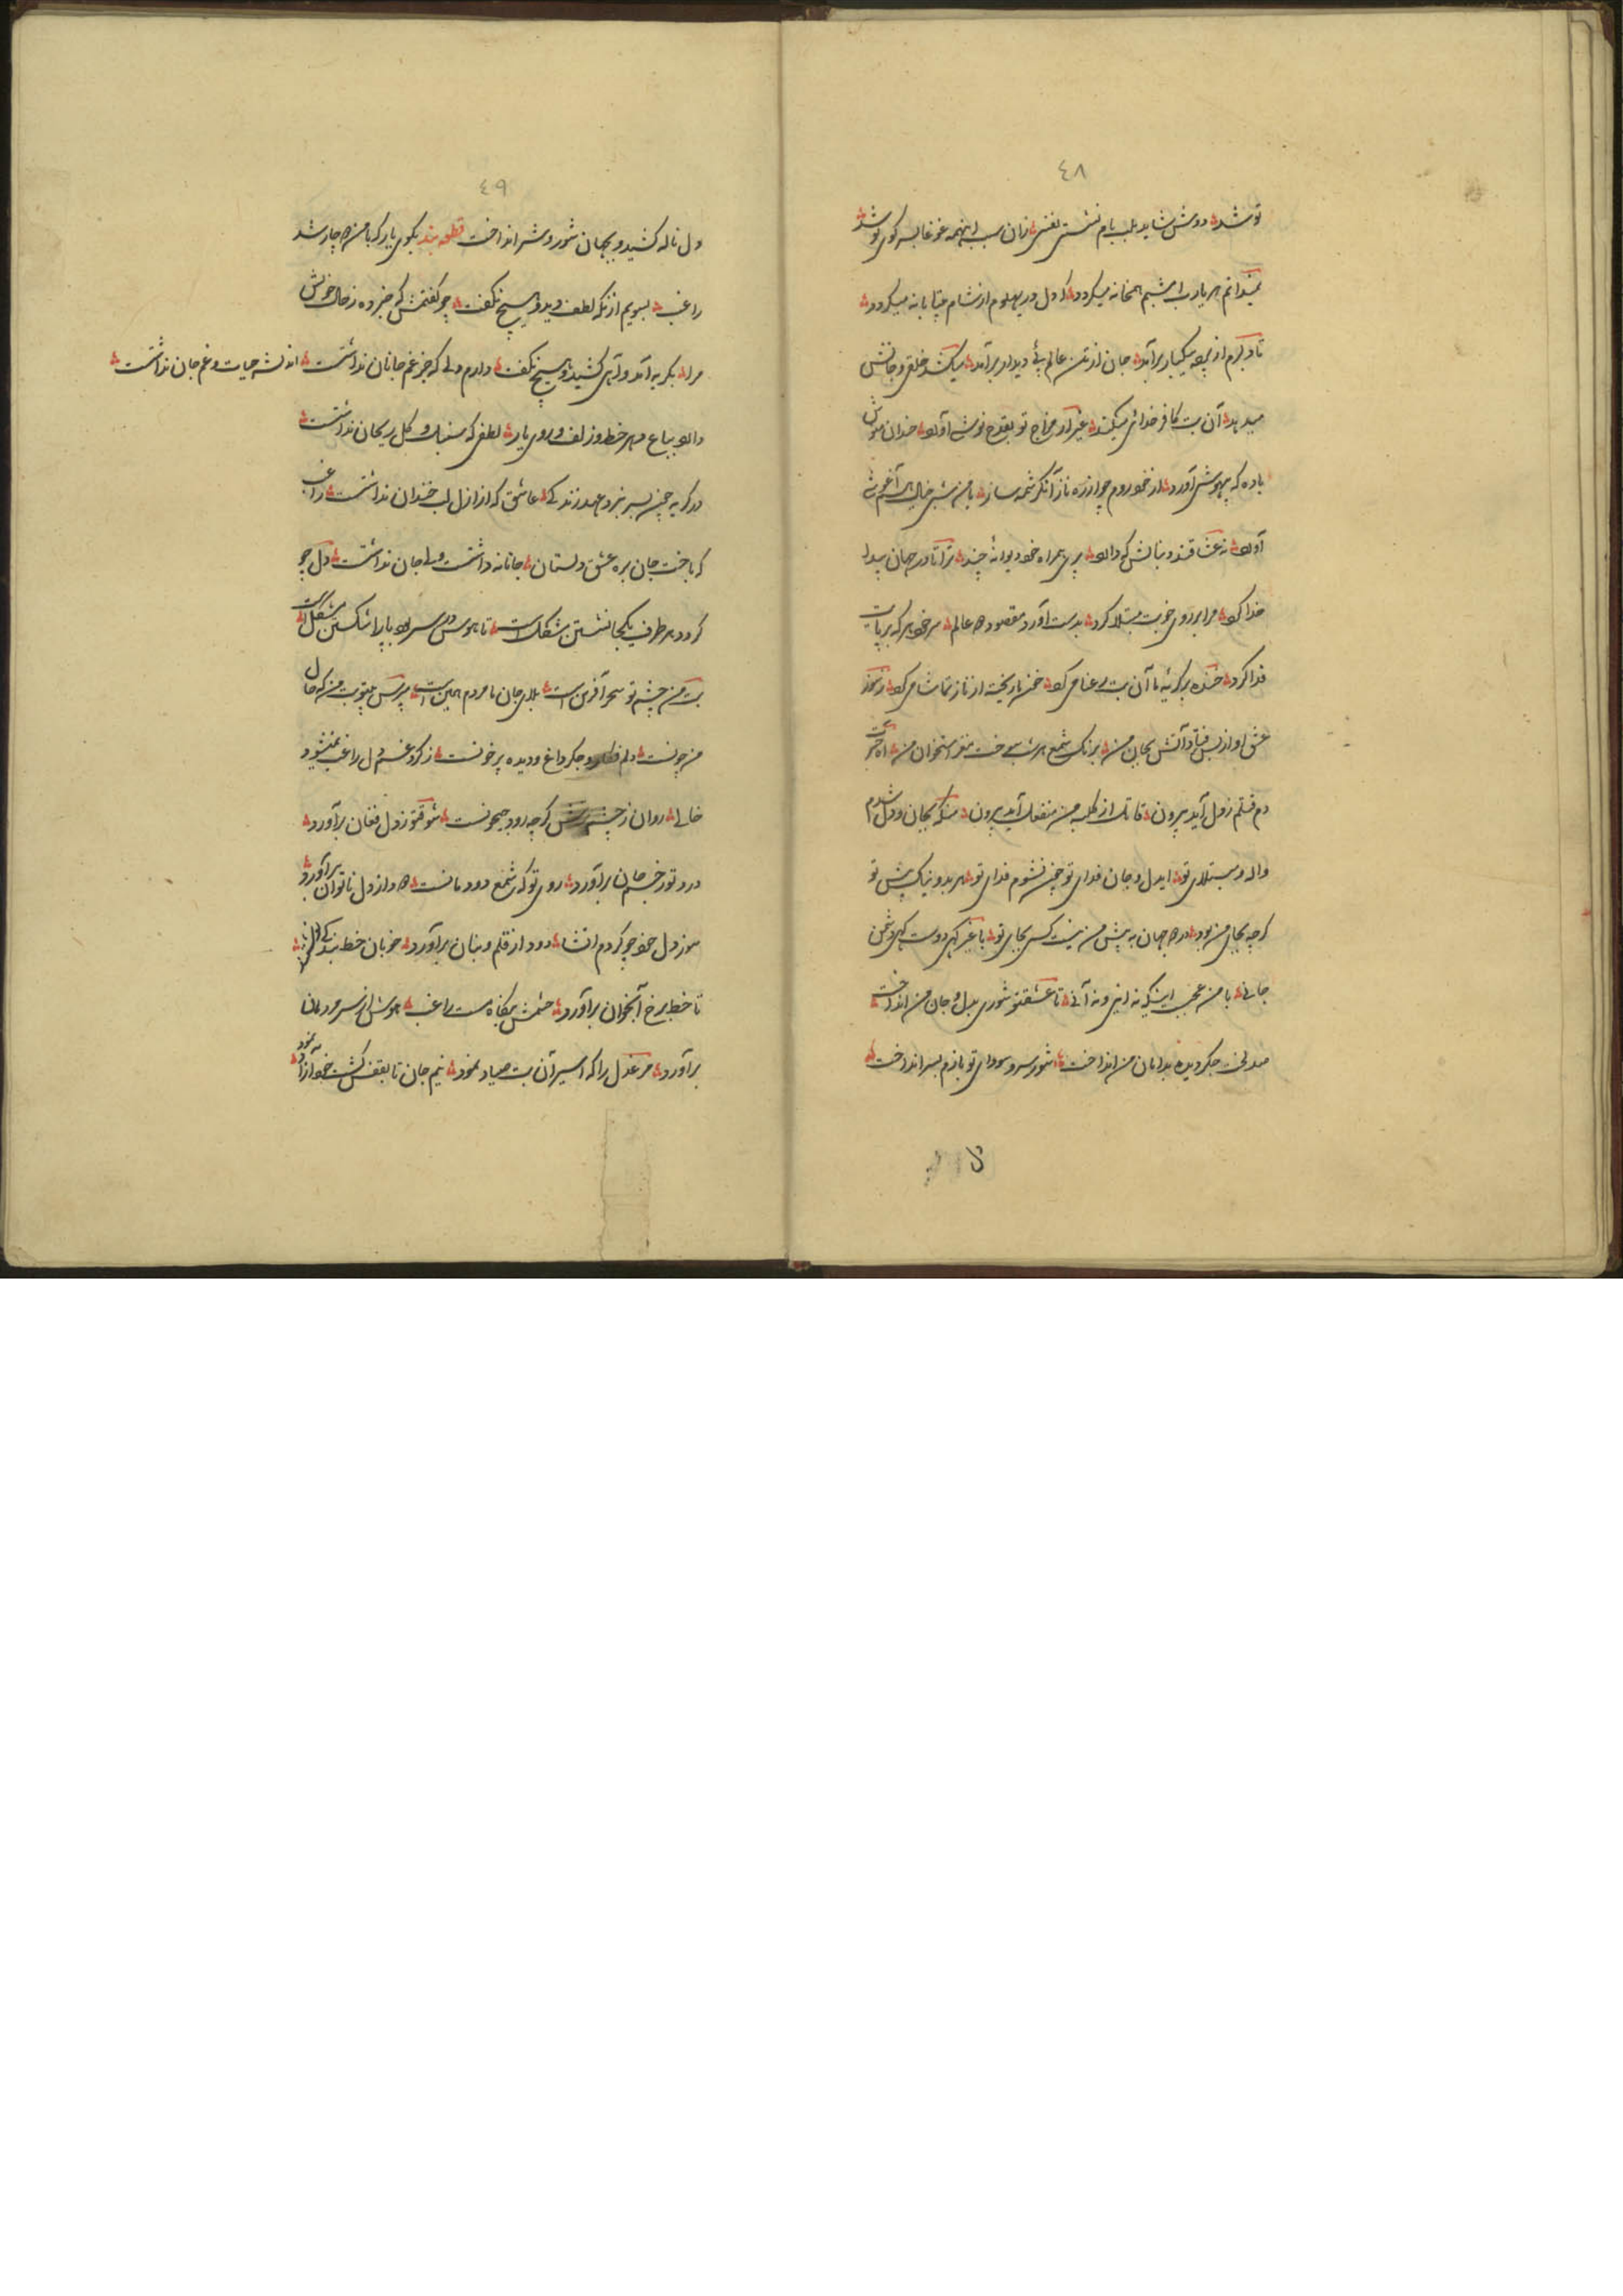 ٤٨
تو شد دوش شاید بلب بام نشستی نفسی زان سبب اینهمه غوغا بسر کوی تو شد
نمیدانم که یارب امشبم همخانه میگردد که دل در پهلوم از شام بیتابانه میگردد
تا دلبرم از پرده بیکبار برآید جان از تن عالم پئے دیدار برآید میکشد خلقی و جانش
میدهد آن بت کافر خدائی میکند غیر از مزاج تو بقدح نوشے آورد خندان
باده که بیهوشی آورد از خود روم چو از ره ناز آن کرشمه ساز با من شبی خیال هم آغوشے
آورد نه عشاقند دنبالش که دارد پری همراه خود دیوانهٔ چند ترا تا در جهان پیدا
خدا کرد مرا بر روی خوبت مبتلا کرد بدست آورد مقصود دو عالم سر خود هر که بر پایت
فدا کرد خنده بر گریهٔ ما آن بت رعنا می کرد خون ما ریخته از ناز تماشا می کرد ز سوز
عشق او از بس فتاد آتش بجان من برنگ شمع هر شب سوخت مغز استخوان من آه
دم قتلم ز دل آید بیرون قاتل از کلبه من منفعل آید بیرون منکه بجان و دل شدم
واله و مبتلای تو ایدل و جان فدای تو چون نشوم فدای تو هر بد و نیک پیش تو
گرچه بجای من بود در دو جهان به پیش من نیست کسی بجای تو با غیر گهی دوست گهی دشمن
جانے با من عجب اینکه نه اینی و نه آنے تا عشقتو شوری بدل و جان من انداخت
لخت جگر دیده بدامان من انداخت شور سر و سودای تو بازم بسر انداخت
٤٩
دل ناله کشید و بجهان شور و شر انداخت قطعه بند بکوی یار که با من دوچار شد
راغب بسویم از نگه لطف دید و هیچ نگفت چو گفتمش که خبر ده ز حال خویش
مرا بگریه آمد و آهی کشید و هیچ نگفت دارم دلے که جز غم جانان نداشت اندیشه حیات و غم جان نداشت
دارد بباغ دهر خط و زلف و روی یار لطفی که سنبل و گل ریحان نداشت
در گریه چون بسر نبرد عهد زندگے عاشق که از ازل لب خندان نداشت راغب
که باخت جان بره عشق دلستان جانانه داشت ولے جان نداشت دل چو
گردد هر طرف یکجا نشستن مشکل است تا هوس در سر بود پا را شکستن مشکل است
بت من چشم تو سحر آفرین است بلای جان ما مردم همین است مپرس بیتو بت من که حال
من چونست دلم فگار و جگر داغ و دیده پر خونست ز گرد غم دل راغب نمیشود
خالے روان ز چشم ترش گرچه رود جیحونست شوقتو ز دل فغان برآورد
درد تو ز جسم جان برآورد روی تو که شمع دودمانست دود از دل ناتوان برآورد
سوز دل خود چو کردم انشا دود از قلم و بنان برآورد خوبان خط بندگے
تا خط برخ آنجوان برآورد چشمش بنگاه مست راغب هوش از سر مردمان
برآورد مرغ دل را که اسیر آن بت صیاد نمود نیم جان تا بقفس گشت خود آزاد نمود